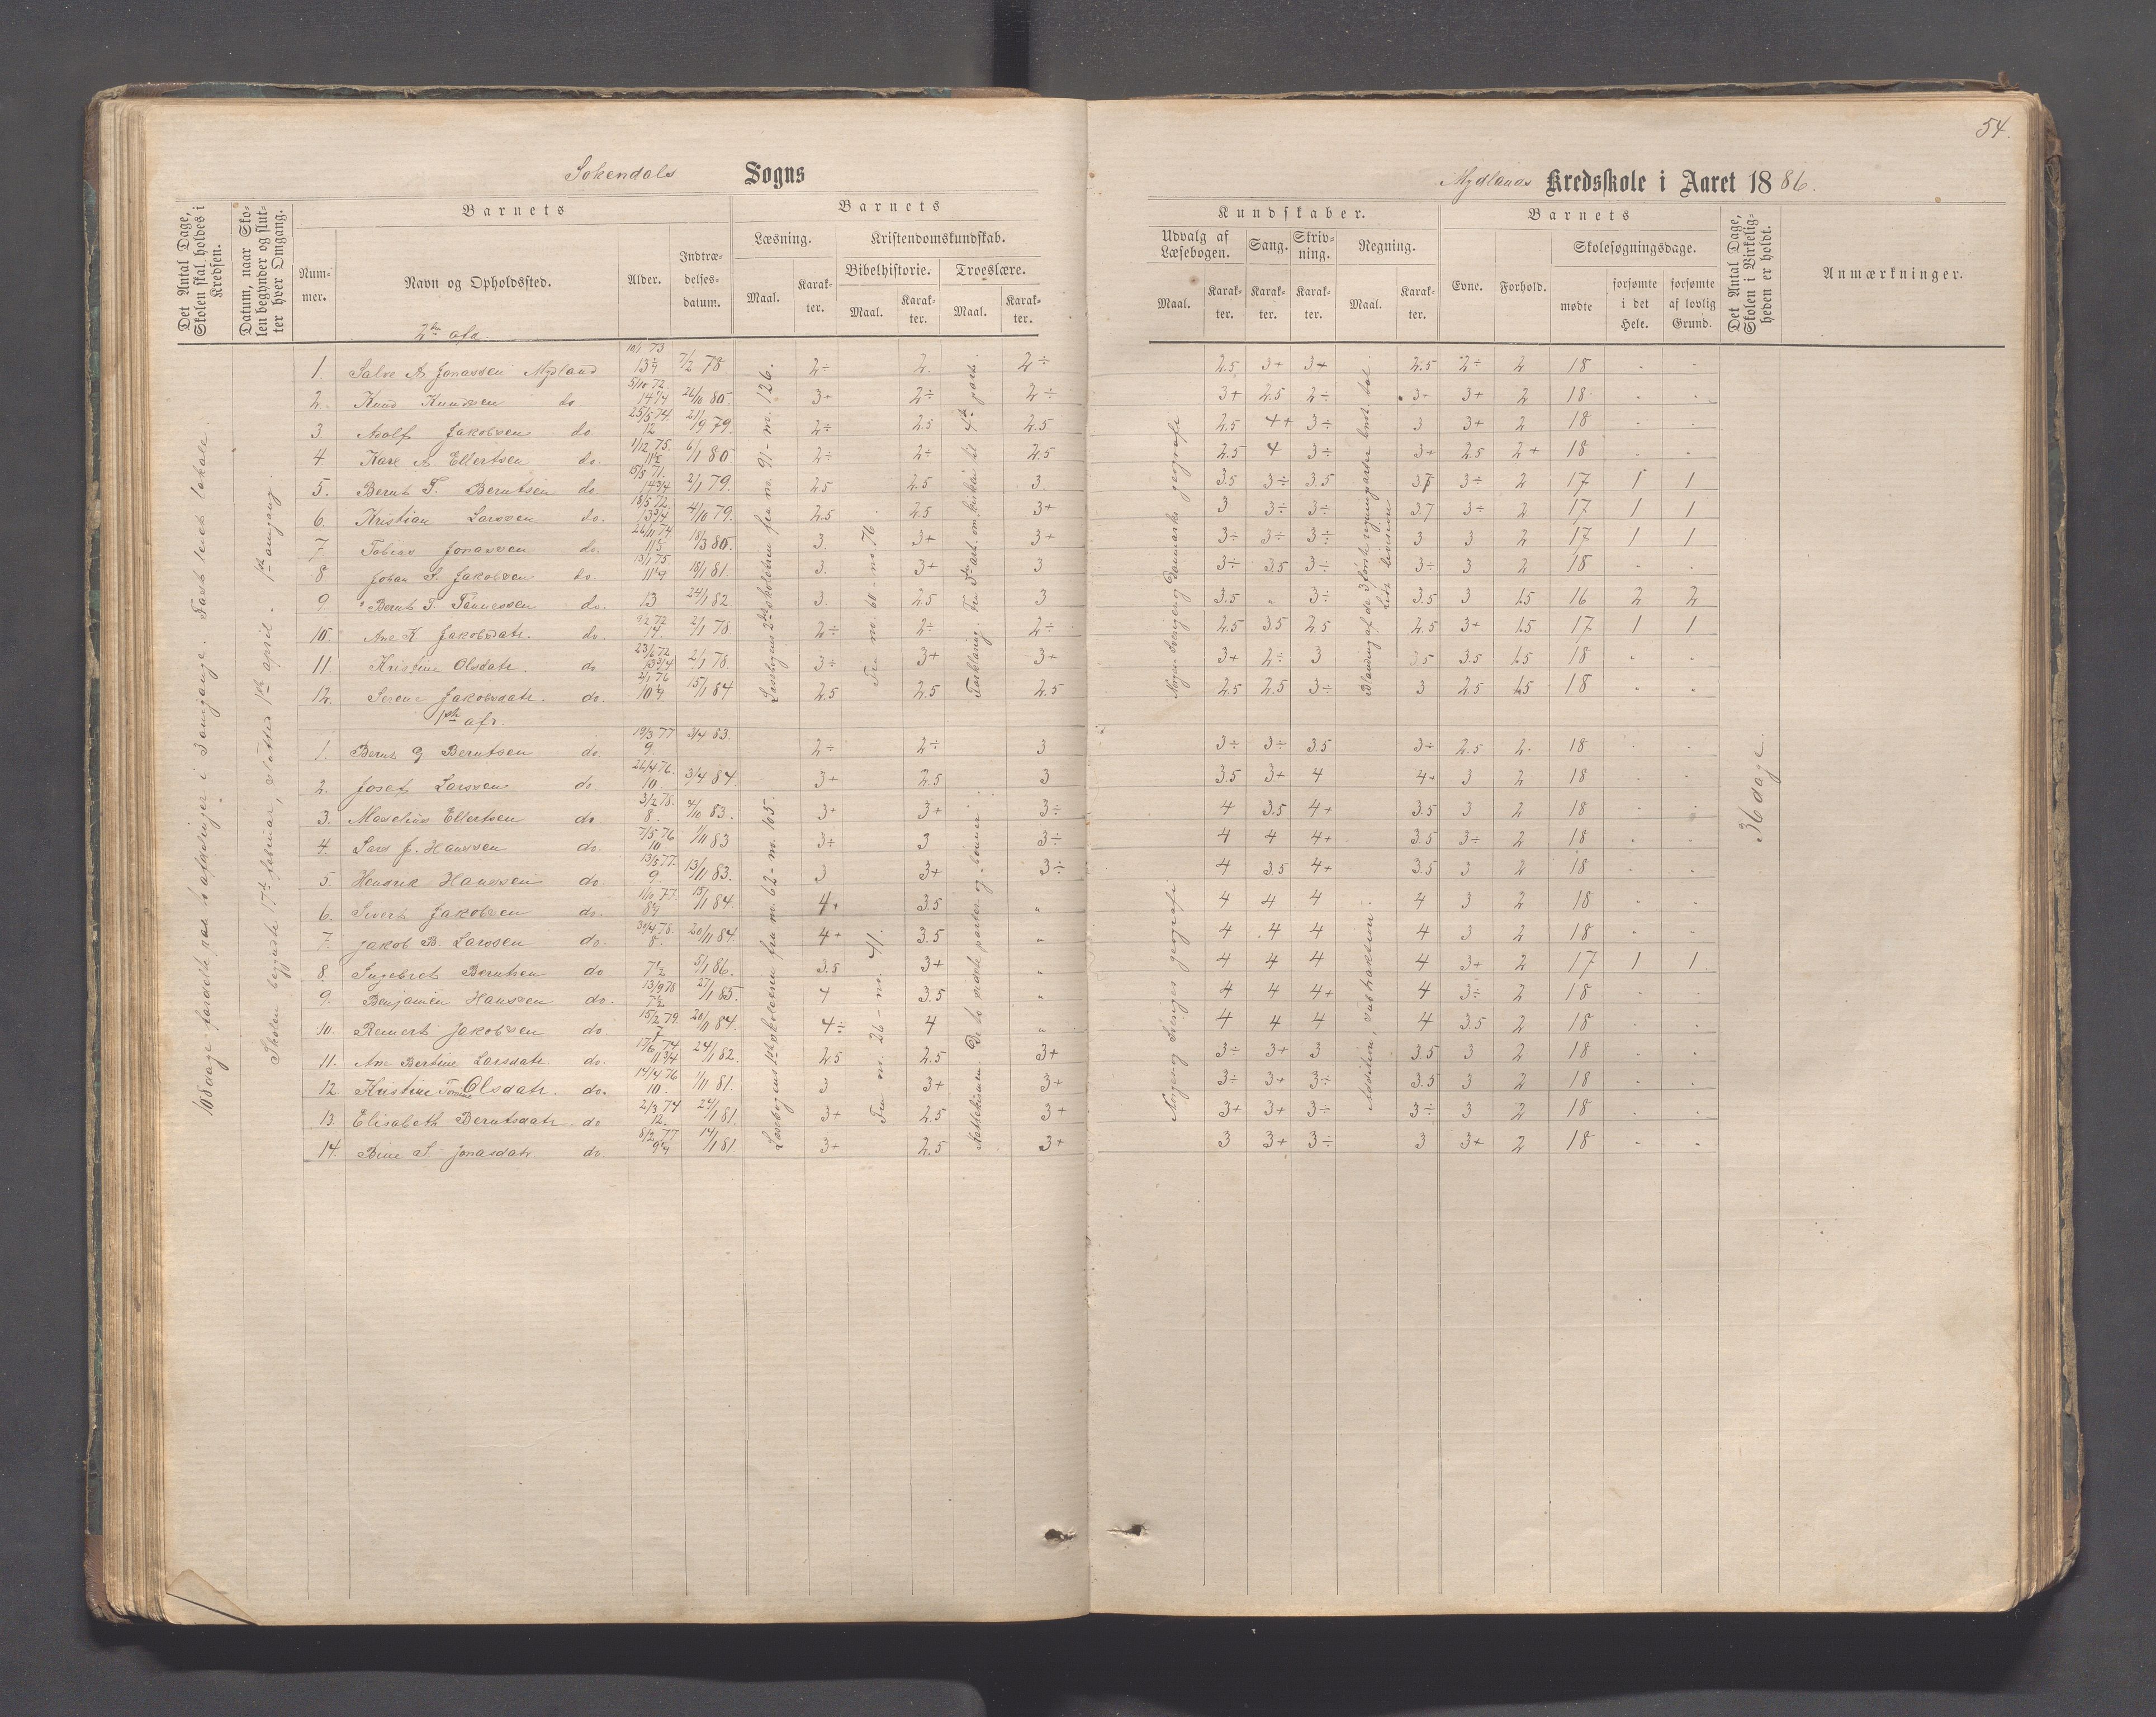 54.
Sokendals Sogns
Mydlands Kredsskole i Aaret 1886.
Det Antal Dage, Skolen skal holdes i Kredsen.
Datum, naar Skolen begynder og slutter hver Omgang.
Barnets
Nummer.
Navn og Opholdssted.
Alder.
Indtrædelsesdatum.
Barnets
Læsning.
Maal.
Karakter.
Kristendomskundskab.
Bibelhistorie.
Maal.
Karakter.
Troeslære.
Maal.
Karakter.
Kundskaber.
Udvalg af Læsebogen.
Maal.
Karakter.
Sang.
Karakter.
Skrivning.
Karakter.
Regning.
Maal.
Karakter.
Barnets
Evne.
Forhold.
Skolesøgningsdage.
mødte
forsømte i det Hele.
forsømte af lovlig Grund.
Det Antal Dage, Skolen i Virkeligheden er holdt.
Anmærkninger.
108 dage fordelte paa 2 afdelinger i 3 omgange. Fast leiet lokale.
Skolen begyndte 17de februar, sluttes 1ste april. 1ste omgang.
2den afd.
1. Salve A Jonassen Mydland 10/1 73 7/2 78 2÷ 2. 2÷ 2.5 3+ 3+ 2.5 2÷ 2 18 - -
2. Knud Knudsen do 5/10 72 14 1/4 26/10 80. 3+ 2÷ 2÷ 3+ 2.5 2÷ 3÷ 3+ 2 18 - -
3 Adolf Jakobsen do 25/5 74 12 21/9 79. 2÷ 2.5 2.5 2.5 4+ 3÷ 3 3+ 2 18 - -
4 Karl A Ellertsen do. 1/12 75. 6/1 80 2÷ 2÷ 2.5 2.5 4 3÷ 3+ 2.5 2+ 18 - -
5. Bernt T. Berntsen do 15/5 71. 14 3/4 2/1 79. 2.5 2.5 3 3.5 3÷ 3.5 3÷ 2 17 1 1
6. Kristian Larssen do. 18/5 72. 13 3/4 4/10 79. 2.5 2.5 3+ 3 3÷ 3÷ 3.7 3÷ 2 17 1 1
7. Tobias Jonassen do. 26/11 74 18/3 80. 3 3+ 3+ 3÷ 3÷ 3÷ 3 3 2 17 1 1
8 Johan S. Jakobsen do. 13/1 75 18/1 81. 3. 3+ 3 3÷ 3.5 3÷ 3÷ 3 2 18 - -
9. Bernt T. Tønnessen do. 13 24/1 82. 3. 2.5 3 3.5 " 3÷ 3.5 3 1.5 16 2 2
10 Ane K Jakobsdatr. do. 9/2 72 14. 2/1 78 2÷ 2÷ 2÷ 2.5 3.5 2.5 2.5 3+ 1.5 17 1 1
11 Kristine Olsdatr. do 23/6 72 13 3/4 2/1 78. 3÷ 3+ 3+ 3+ 2÷ 3 3.5 3.5 1.5 18 - -
12. Serene Jakobsdatr. do. 2/1 76 15/1 84 2.5 2.5 2.5 2.5 2.5 3÷ 3 2.5 1.5 18 - -
Læsebogens 2det skoletrin fra nr. 91 - nr. 126.
Fra nr. 60 - nr. 76.
Forklaring. Fra 3die art. om kirken til 4de part.
Blanding af de 3 første regningsarter
1ste afd.
1. Bernt G. Berntsen do 19/3 77 9. 3/4 83. 2÷ 2÷ 3 3÷ 3÷ 3.5 3÷ 2.5 2. 18 - -
2. Josef Larssen do 26/4 76. 10. 3/4 84. 3+ 2.5 3 3.5 3+ 4 4+ 3 2 18 - -
3. Maselius Ellertsen do 3/2 78. 8. 4/10 83. 3+ 3+ 3÷ 4 3.5 4+ 3.5 3 2 18 - -
4. Lars J. Hanssen do. 7/5 76 10. 1/11 83 3÷ 3 3÷ 4 4 4+ 3.5 3÷ 2 18 - -
5. Hendrik Hanssen do 13/5 77. 9 13/11 83. 3 3+ 3÷ 4 3.5 4+ 3.5 3 2 18 - -
6. Sivert Jakobsen do. 1/10 77. 15/1 84. 4+ 3.5 " 4 4 4 4 3 2 18 - -
7. Jakob B. Larssen do. 30/4 78. 8. 20/11 84. 4+ 3.5 " 4 4 4 4 3 2 18 - -
8. Ingebret Berntsen do 7 1/2 5/1 86. 3.5 3+ " 4 4 4 4 3+ 2 17 1 1
9. Benjamin Hanssen do. 13/9 78 7 1/2 27/1 85. 4 3.5 " 4 4 4+ 4 3÷ 2 18 - -
10. Reinert Jakobsen do 15/2 79. 7 20/11 84. 4÷ 4 " 4 4 4 4 3.5 2 18 - -
11. Ane Bertine Larsdatr. do. 17/6 74. 11 3/4 24/1 82. 2.5 2.5 3+ 3÷ 3+ 3 3.5 3 2 18 - -
12. Kristine Tomine Olsdatr. do. 14/4 76 10. 1/11 81. 3 3+ 3+ 3÷ 3+ 3÷ 3.5 3 2 18 - -
13. Elisabeth Berntsdatr. do 2/3 74 12. 24/1 81. 3+ 2.5 3+ 3+ 3+ 3÷ 3÷ 3 2 18 - -
14. Bine S. Jonasdatr. do. 8/2 77 14/1 81. 3+ 2.5 3+ 3 3+ 3÷ 3 3+ 2 18 - -
Læsebogens 1ste skoletrin fra nr. 62 - nr. 105.
Fra nr. 26 - nr. 41.
Katekismen. De to sidste parter og bønner.
Norges og Sveriges geografi.
Addition, subtraktion.
36 dage.